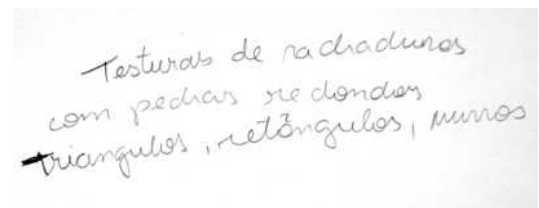 Testuras de rachaduras
com pedras redondas
triangulos, retângulos, murros